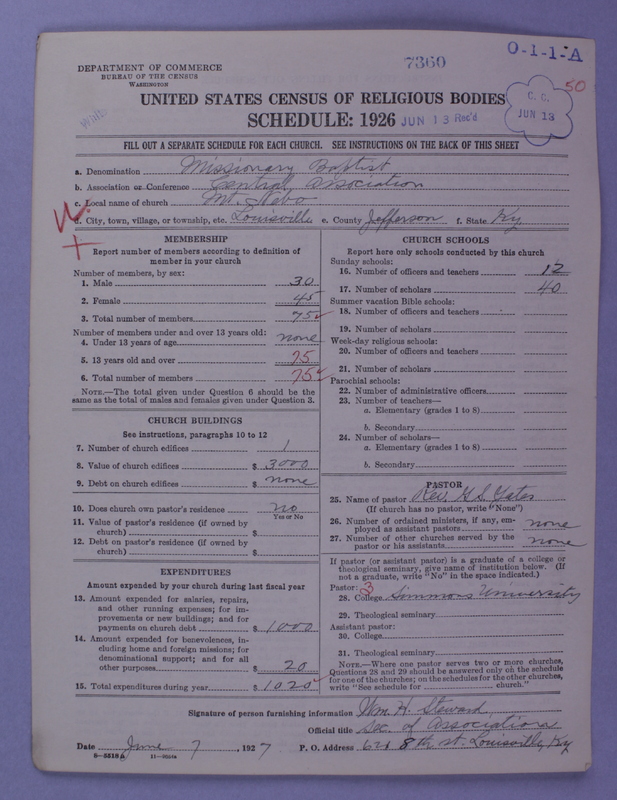 O-1-1-A
7360
DEPARTMENT OF COMMERCE
BUREAU OF THE CENSUS
WASHINGTON
50
UNITED STATES CENSUS OF RELIGIOUS BODIES
SCHEDULE: 1926 JUN 13 Rec'd
C. C.
JUN 13
FILL OUT A SEPARATE SCHEDULE FOR EACH CHURCH. SEE INSTRUCTIONS ON THE BACK OF THIS SHEET
a. Denomination Missionary Baptist
b. Association or Conference Central Association
c. Local name of church Mt. Nebo
d. City, town, village, or township, etc. Louisville e. County Jefferson f. State Ky.
MEMBERSHIP
Report number of members according to definition of
member in your church
Number of members, by sex:
1. Male 30
2. Female 45
3. Total number of members 75
Number of members under and over 13 years old:
4. Under 13 years of age none
5. 13 years old and over 75
6. Total number of members 75
NOTE.—The total given under Question 6 should be the
same as the total of males and females given under Question 3.
CHURCH BUILDINGS
See instructions, paragraphs 10 to 12
7. Number of church edifices 1
8. Value of church edifices $ 3000
9. Debt on church edifices $ none
10. Does church own pastor's residence? no
Yes or No
11. Value of pastor's residence (if owned by
church) $
12. Debt on pastor's residence (if owned by
church) $
EXPENDITURES
Amount expended by your church during last fiscal year
13. Amount expended for salaries, repairs,
and other running expenses; for im-
provements or new buildings; and for
payments on church debt $ 1000
14. Amount expended for benevolences, in-
cluding home and foreign missions; for
denominational support; and for all
other purposes $ 20
15. Total expenditures during year $ 1020
CHURCH SCHOOLS
Report here only schools conducted by this church
Sunday schools:
16. Number of officers and teachers 12
17. Number of scholars 40
Summer vacation Bible schools:
18. Number of officers and teachers
19. Number of scholars
Week-day religious schools:
20. Number of officers and teachers
21. Number of scholars
Parochial schools:
22. Number of administrative officers
23. Number of teachers—
a. Elementary (grades 1 to 8)
b. Secondary
24. Number of scholars—
a. Elementary (grades 1 to 8)
b. Secondary
PASTOR
25. Name of pastor Rev. G. S. Yates
(If church has no pastor, write "None")
26. Number of ordained ministers, if any, em-
ployed as assistant pastors none
27. Number of other churches served by the
pastor or his assistants none
If pastor (or assistant pastor) is a graduate of a college or
theological seminary, give name of institution below. (If
not a graduate, write "No" in the space indicated.)
Pastor: 3
28. College Simmons University
29. Theological seminary
Assistant pastor:
30. College
31. Theological seminary
NOTE.—Where one pastor serves two or more churches,
Questions 28 and 29 should be answered only on the schedule
for one of the churches; on the schedules for the other churches,
write "See schedule for church."
Signature of person furnishing information Wm. H. Steward
Official title Sec. of Association
Date June 7, 1927 P. O. Address 621 8th st. Louisville, Ky
8-5518a 11-9924a